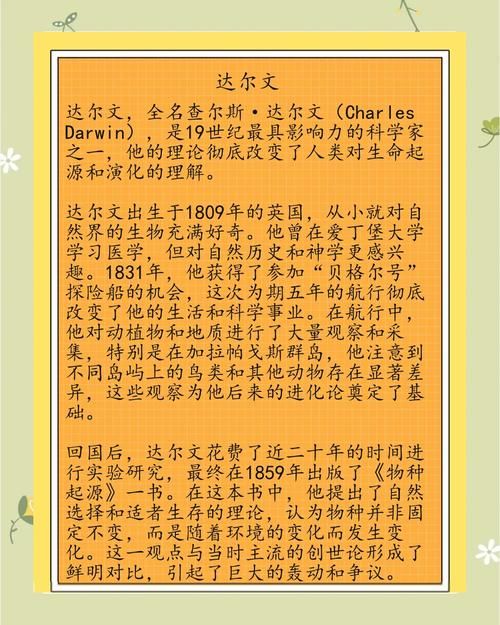 达尔文
达尔文，全名查尔斯·达尔文（Charles
Darwin），是19世纪最具影响力的科学家
之一，他的理论彻底改变了人类对生命起
源和演化的理解。
达尔文出生于1809年的英国，从小就对自
然界的生物充满好奇。他曾在爱丁堡大学
学习医学，但对自然历史和神学更感兴
趣。1831年，他获得了参加“贝格尔号”
探险船的机会，这次为期五年的航行彻底
改变了他的生活和科学事业。在航行中，
他对动植物和地质进行了大量观察和采
集，特别是在加拉帕戈斯群岛，他注意到
不同岛屿上的鸟类和其他动物存在显著差
异，这些观察为他后来的进化论奠定了基
础。
回国后，达尔文花费了近二十年的时间进
行实验研究，最终在1859年出版了《物种
起源》一书。在这本书中，他提出了自然
选择和适者生存的理论，认为物种并非固
定不变，而是随着环境的变化而发生变
化。这一观点与当时主流的创世论形成了
鲜明对比，引起了巨大的轰动和争议。